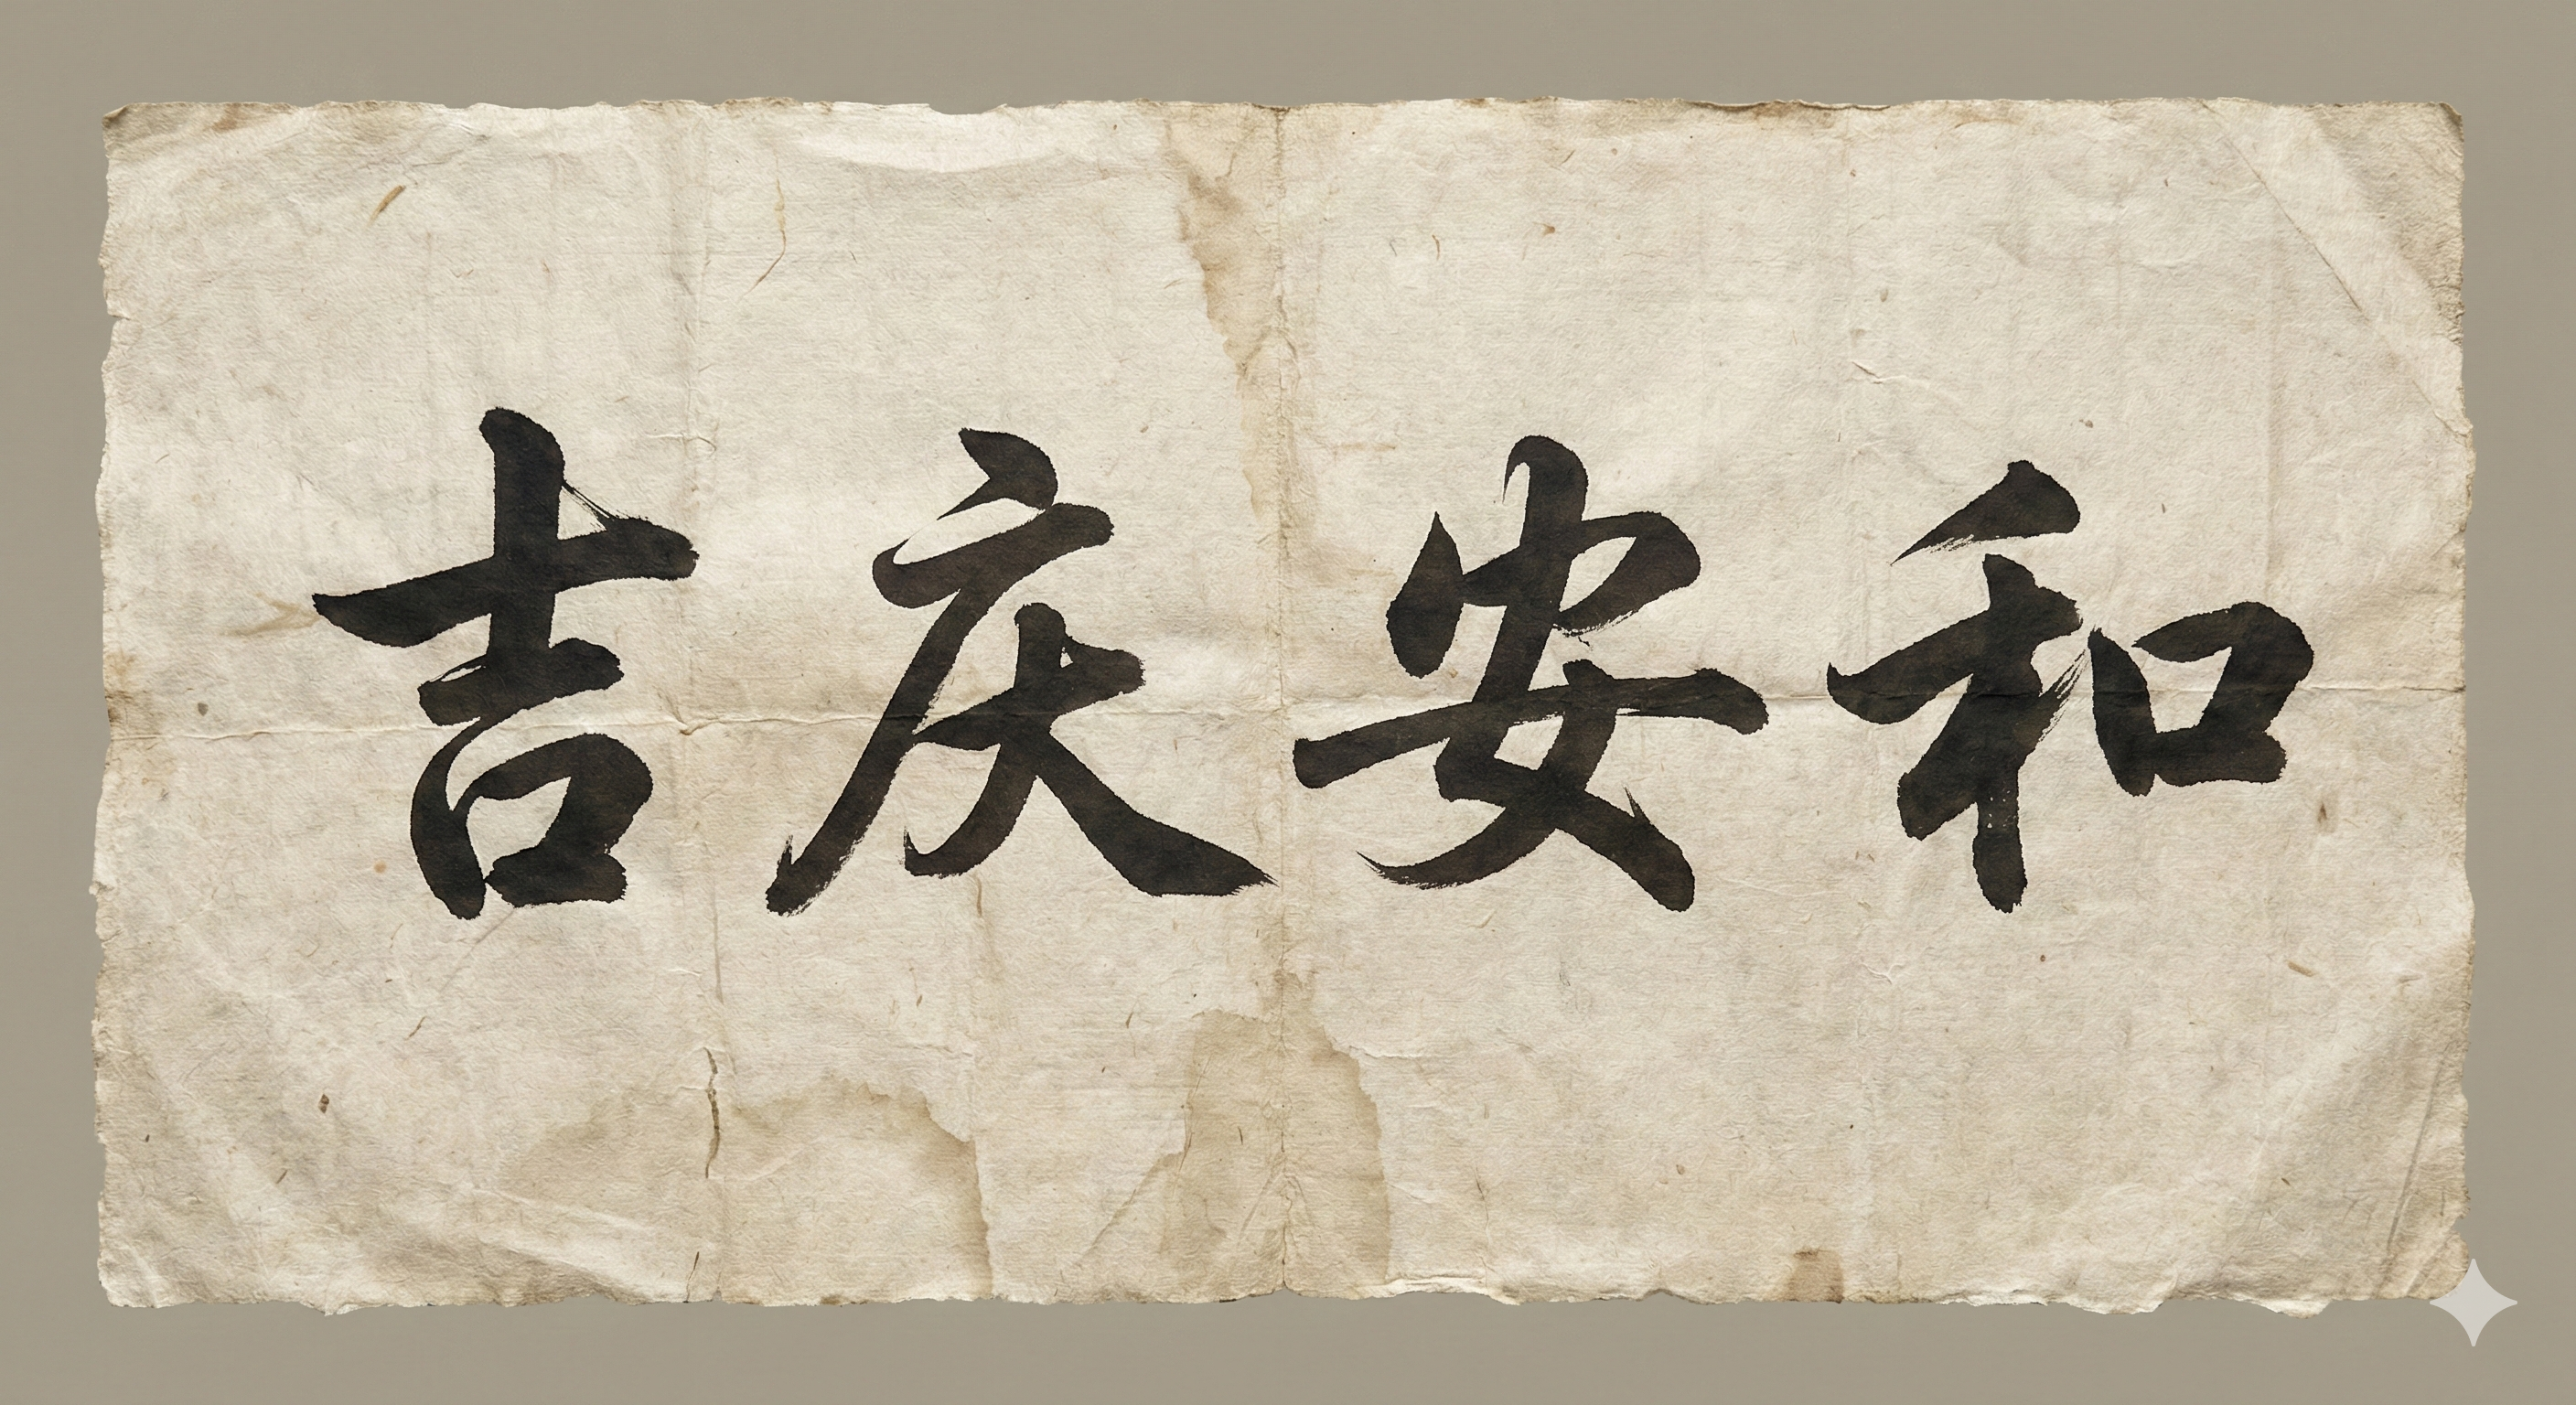 吉庆安和